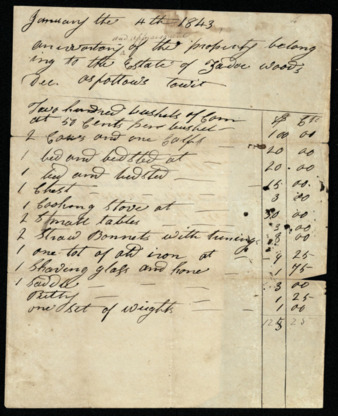 January the 4th 1843
and appraisement
an inventory of the property belong
ing to the Estate of Zadoc Woods
Dec. as follows towit
$ Cts
Two hundred bushels of Corn
at 50 Cents per bushel — 100 00
2 Cows and one Calf — 20 00
1 bed and bedsted at — 20 00
1 bed and bedsted — 15 00
1 Chest — 3 00
1 Cooking stove at — 30 00
2 Small tables — 3 00
2 Straw Bonnets with trimings 00
1 one lot of old iron at — 4 25
1 Shaving glass and hone — 1 75
1 Saddle — 3 00
1 25
one set of weights 1 00